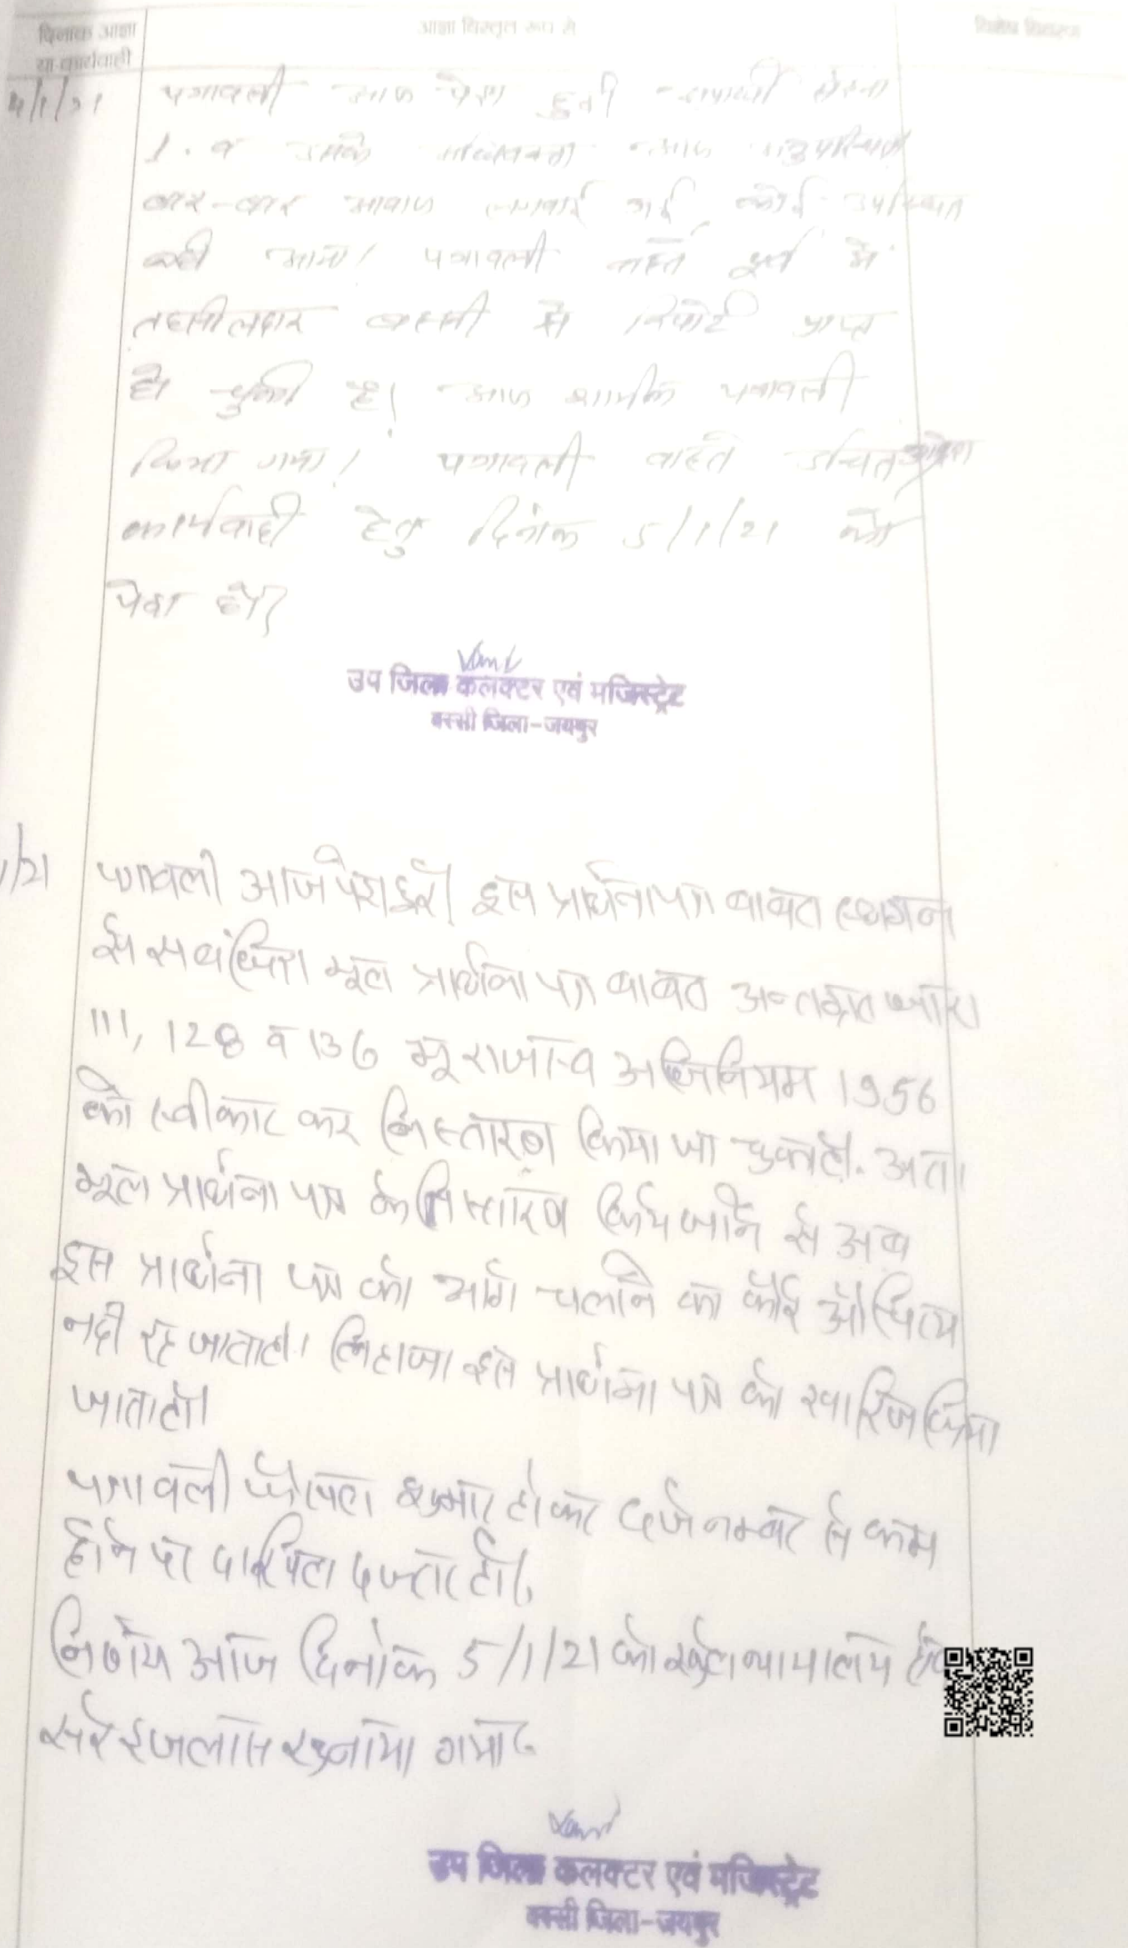 दिनांक आज्ञा
या कार्यवाही
आज्ञा विस्तृत रूप से
विशेष विवरण
4/1/21
पत्रावली आज पेश हुयी अप्रार्थी
1. व उसके अधिवक्ता आज अनुपस्थित
बार-बार आवाज लगवाई गई कोई उपस्थित
नही आया। पत्रावली वास्ते पूर्व में
तहसीलदार बस्सी से रिपोर्ट प्राप्त
हो चुकी है। आज शामिल पत्रावली
किया गया। पत्रावली वास्ते उचित आदेश
कार्यवाही हेतु दिनांक 5/1/21 को
पेश हो।
उप जिला कलक्टर एवं मजिस्ट्रेट
बस्सी जिला-जयपुर
1/21
पत्रावली आज पेश हुई। इस प्रार्थना पत्र बाबत स्थगन
से सबंधित मूल प्रार्थना पत्र बाबत अन्तर्गत धारा
111, 128 व 136 भू राजस्व अधिनियम 1956
को स्वीकार कर निस्तारण किया जा चुका है. अतः
मूल प्रार्थना पत्र के निस्तारण किये जाने से अब
इस प्रार्थना पत्र को आगे चलाने का कोई औचित्य
नही रह जाता है। लिहाजा इस प्रार्थना पत्र को खारिज किया
जाता है।
पत्रावली फैसल शुमार होकर दर्ज नम्बर से कम
होने पर दाखिल दफ्तर हो।
निर्णय आज दिनांक 5/1/21 को खुले न्यायालय
सरे इजलास सुनाया गया।
उप जिला कलक्टर एवं मजिस्ट्रेट
बस्सी जिला-जयपुर